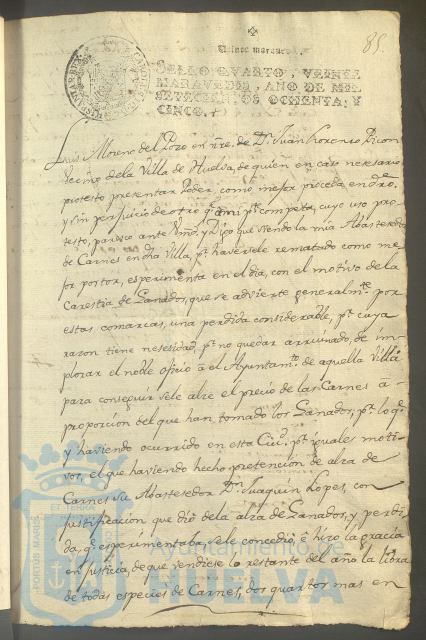 85.
Veinte maravedis.
SELLO QVARTO, VEINTE
MARAVEDIS, AÑO DE MIL
SETECIENTOS OCHENTA, Y
CINCO.
Luis Moreno del Pozo en nre. de Dn. Juan Lorenzo Ricon
Vecino de la Villa de Huelva, de quien en caso nesesario
protesto presentar Poder, como mejor proceda en dro.
y sin perjuicio de otro qe. ami pte. competa, cuyo uso pro-
testo, paresco ante Vmd. y Digo que siendo la mia Abastesedor
de Carnes en dha Villa, pr. haversele rematado como me-
jor postor, esperimenta en el dia, con el motivo de la
Carestia de Ganados, que se advierte generalmte. por
estas comarcas, una perdida considerable, pr. cuya
razon tiene nesesidad, pa. no quedar arruinado, de im-
plorar el noble oficio de el Ayuntamto. de aquella Villa
para conseguir sele alze el precio de las Carnes a
proporcion del que han tomado los Ganados, pr. lo qe.
y haviendo ocurrido en esta Ciud. pr. iguales moti-
vos, el que haviendo hecho pretencion de alza de
Carnes su Abastesedor Dn. Juaquin Lopes, con
justificacion que dio de la alza de Ganados, y perdi-
da, qe. esperimentaba, sele concedio, e hizo la gracia
en justicia, de que vendiese lo restante del año la libra
de todas especies de Carnes, dos quartos mas en
Ayuntamiento de
HUELVA
PORTUS MARIS
ET TERRAE